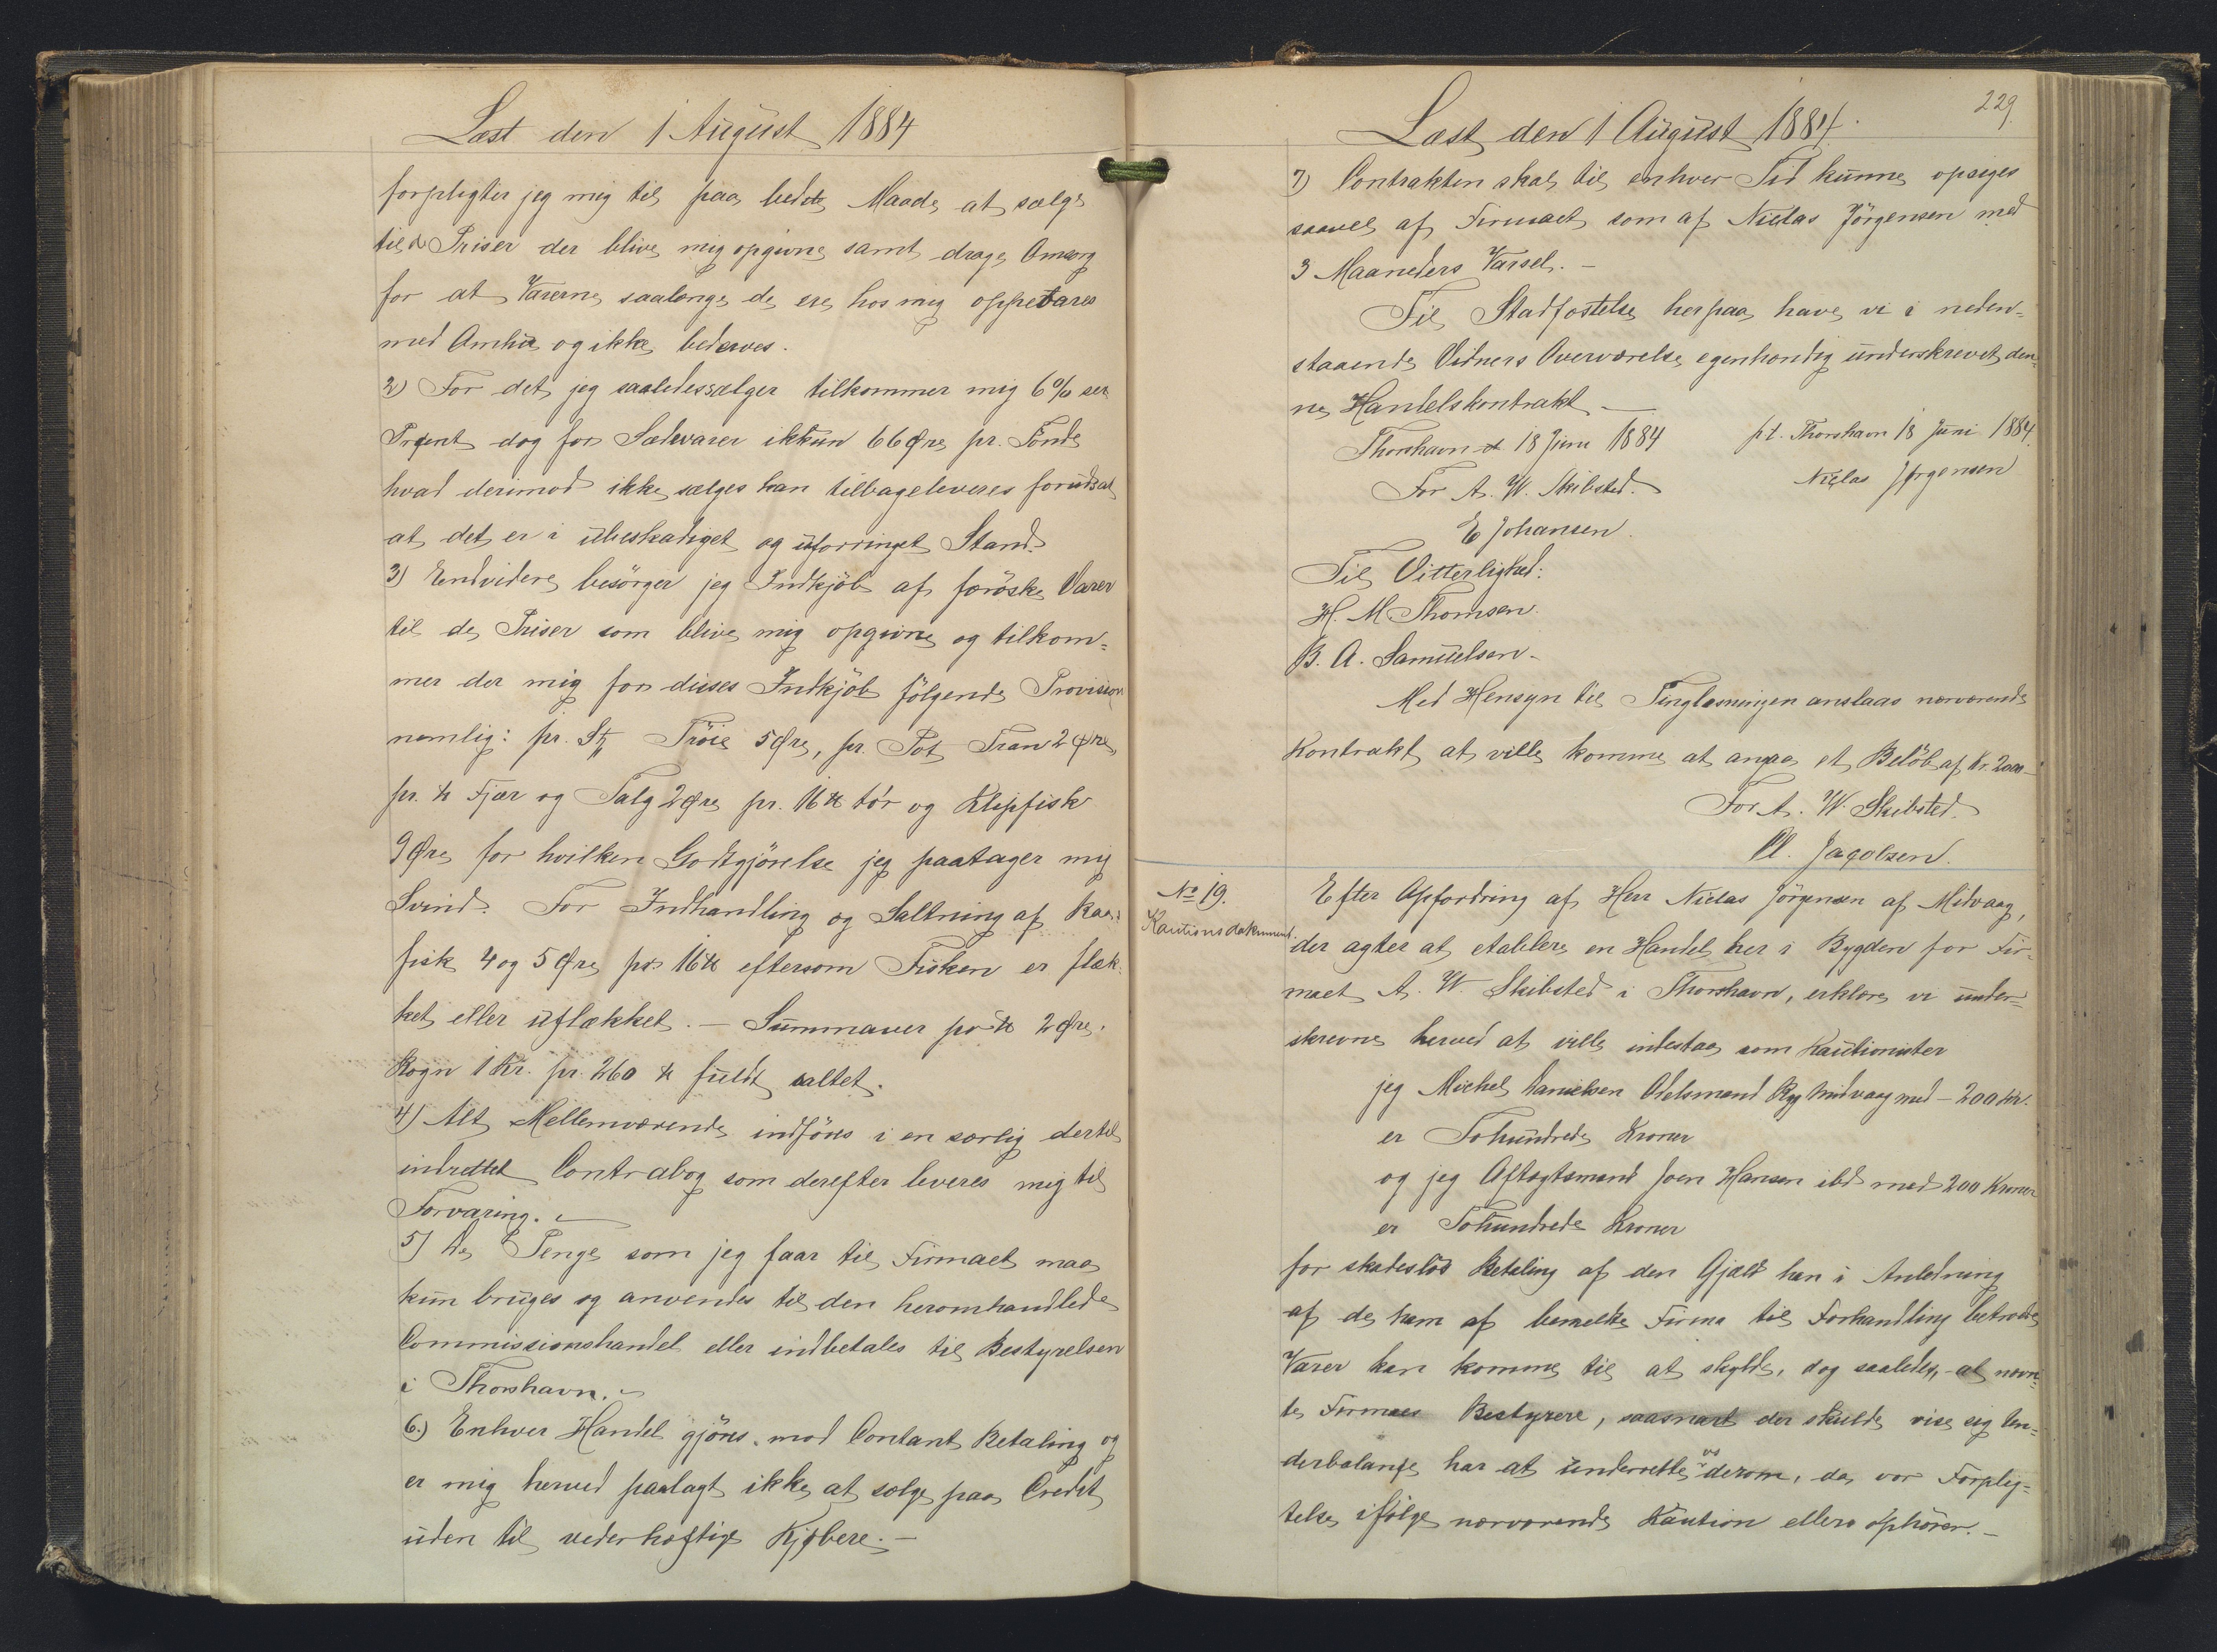 Læst den 1 August 1884
forpligter jeg mig til paa bedste Maade at sælge
til de Priser der blive mig opgivne samt drage Omsorg
for at Varerne saalænge de ere hos mig oppebares
med Omhu og ikke bedærves.
2) For det jeg saaledes sælger tilkommer mig 6%
Procent dog for Sædvarer ikkun 66 Øre pr. Tønde
hvad derimod ikke sælges kan tilbageleveres forudsat
at det er i ubeskadiget og uforringet Stand.
3) Endvidere besörger jeg Indkjöb af færöske Varer
til de Priser som blive mig opgivne og tilkom=
mer der mig for disses Indkjöb fölgende Provision
nemlig: pr. Stk Tröie 5 Øre, pr. Pot Tran 2 Øre,
pr. ℔ Fjær og Talg 2 Øre pr. 16 ℔ tör og Klipfisk
9 Øre for hvilken Godtgjörelse jeg paatager mig
Svind. For Indhandling og Saltning af Raa=
fisk 4 og 5 Øre pr. 16 ℔ eftersom Fisken er flæk=
ket eller uflækket. — Summauer pr ℔ 2 Øre.
Rogn 1 Kr. pr. 260 ℔ fuldt saltet.
4) Alt Mellemværende indföres i en særlig dertil
indrettet Contrabog som derefter leveres mig til
Forvaring. —
5) De Penge som jeg faar til Firmaet maa
kun bruges og anvendes til den heromhandlede
Commissionshandel eller indbetales til Bestyrelsen
i Thorshavn. —
6.) Enhver Handel gjöres mod Contant Betaling og
er mig herved paalagt ikke at sælge paa Credit
uden til vederhæftige Kjøbere. —
Læst den 1 August 1884.
229
7) Contrakten skal til enhver Tid kunne opsiges
saavel af Firmaet som af Niclas Jörgensen med
3 Maaneders Varsel. —
Til Stadfæstelse herpaa have vi i neden=
staaende Vidners Overværelse egenhændig underskrevet den=
ne Handelskontrakt —
Thorshavn d 18 Juni 1884
pt. Thorshavn 18 Juni 1884.
For A. W. Skibsted.
Niclas Jørgensen
E Johansen.
Til Vitterlighed:
H. M. Thomsen.
B. A. Samuelsen.
Med Hensyn til Tinglæsningen anslaas nærværende
Kontrakt at ville komme at angaa et Belöb af Kr. 2000 —
For A. W. Skibsted.
Cl. Jacobsen.
No 19.
Kautionsdokument.
Efter Opfordring af Herr Niclas Jörgensen af Midvaag,
der agter at etablere en Handel her i Bygden for Fir=
maet A. W. Skibsted i Thorshavn, erklære vi under=
skrevne herved at ville indestaa som Kautionister
jeg Michel Danielsen Odelsmand Ryg Midvaag med – 200 Kr.
er Tohundrede Kroner
og jeg Aftægtsmand Joen Hansen ibd med 200 Kroner
er Tohundrede Kroner
for skadeslös Betaling af den Gjæld han i Anledning
af de ham af bemeldte Firma til Forhandling betroede
Varer kan komme til at skylde, dog saaledes, at nævn=
te Firmaes Bestyrere, saasnart der skulde vise sig Un=
derbalance har at underrette os derom, da vor Forplig=
telse ifölge nærværende Kaution ellers ophörer. —